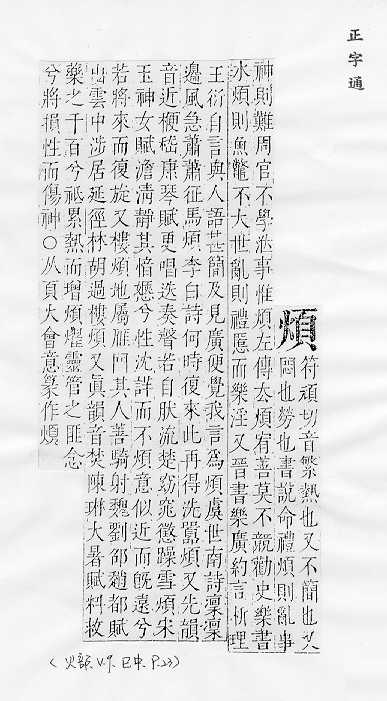 正字通
煩
符頑切音繁熱也又不簡也又
悶也勞也書說命禮煩則亂事
神則難周官不學牆事惟煩左傳去煩宥善莫不競勸史樂書
水煩則魚鼈不大世亂則禮慝而樂淫又晉書樂廣約言析理
王衍自言與人語甚簡及見廣便覺我言為煩虞世南詩凜凜
邊風急蕭蕭征馬煩李白詩何時復來此再得洗囂煩又先韻
音近梗嵇康琴賦更唱迭奏聲若自狀流楚窈窕懲躁雪煩宋
玉神女賦澹清靜其愔嫕兮性沈詳而不煩意似近而旣遠兮
若將來而復旋又樓煩地屬鴈門其人善騎射魏劉邵趙都賦
出雲中涉居延徑林胡過樓煩又眞韻音焚陳琳大暑賦料救
藥之千百兮祗累熱而增煩燿靈管之匪念
兮將損性而傷神○从頁大會意篆作煩
(火部.V.9. 巳中. P.23)